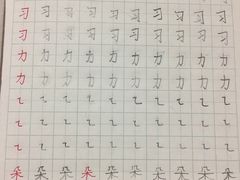 习 习 习 习 习 习 习 习 习
习 习 习 习 习 习 习 习 习
力 力 力 力 力 力 力 力 力
力 力 力 力 力 力 力 力 力
乙 乙 乙 乙 乙 乙 乙 乙 乙
乙 乙 乙 乙 乙 乙 乙 乙 乙
乙 乙 乙 乙 乙 乙 乙 乙 乙
朵 朵 朵 朵 朵 朵 朵 朵 朵